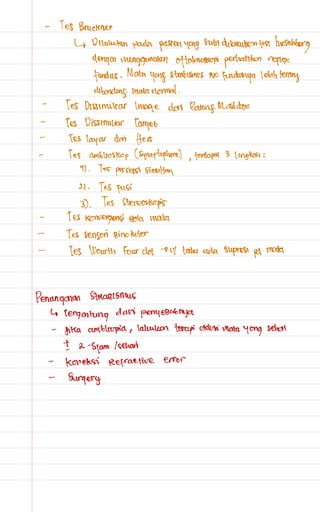 - Tes Bruckner
↳ Dilakukan pada pasien yang sulit dilakukan tes Hirschberg
dengan menggunakan oftalmoskopi perhatikan reflex
fundus. Mata yang strabismus → fundusnya lebih terang
dibanding mata normal.
- Tes Dissimilar Image dari Batang Maddox
- Tes Dissimilar Target
- Tes layar dari Hess
- Tes ambleoskop (Synoptophore), terdapat 3 langkah :
1). Tes persepsi simultan
2). Tes fusi
3). Tes Stereoskopis
- Tes konvergensi kedua mata
- Tes sensori Binokuler
- Tes Worth Four dot → u/ tahu ada supresi pd mata
Penanganan Strabismus
↳ tergantung dari penyebabnya
- Jika ambliopia, lakukan terapi oklusi mata yang sehat
± 2-5jam /sehari
- Koreksi Refractive Error
- Surgery